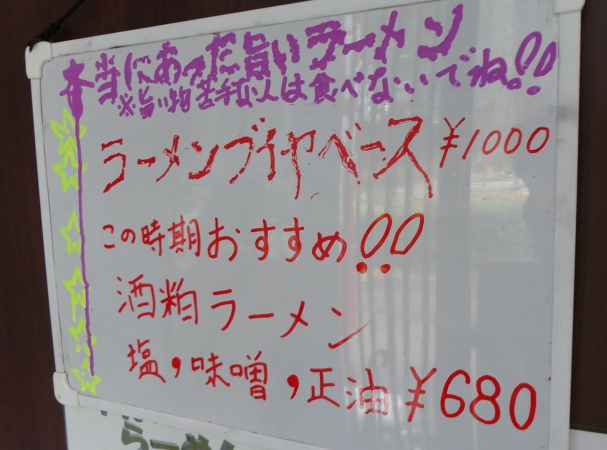 本当にあった旨いラーメン
※旨い物苦手な人は食べないでね!!
ラーメンブイヤベース ¥1000
この時期おすすめ!!
酒粕ラーメン
塩,味噌,正油 ¥680
らーめん